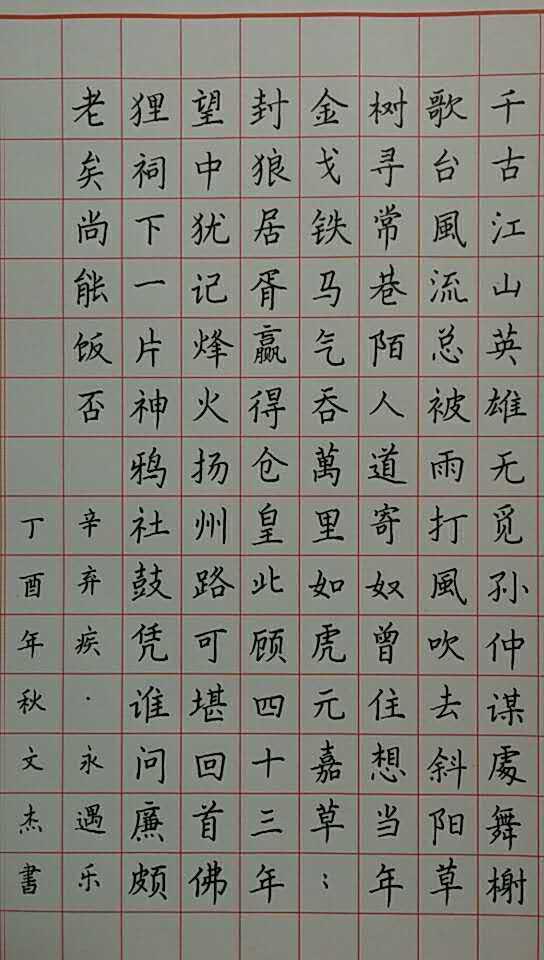 千古江山英雄无觅孙仲谋處舞榭
歌台風流总被雨打風吹去斜阳草
树寻常巷陌人道寄奴曾住想当年
金戈铁马气吞萬里如虎元嘉草⺀
封狼居胥赢得仓皇北顾四十三年
望中犹记烽火扬州路可堪回首佛
狸祠下一片神鸦社鼓凭谁问廉颇
老矣尚能饭否 辛弃疾·永遇乐
丁酉年秋文杰書